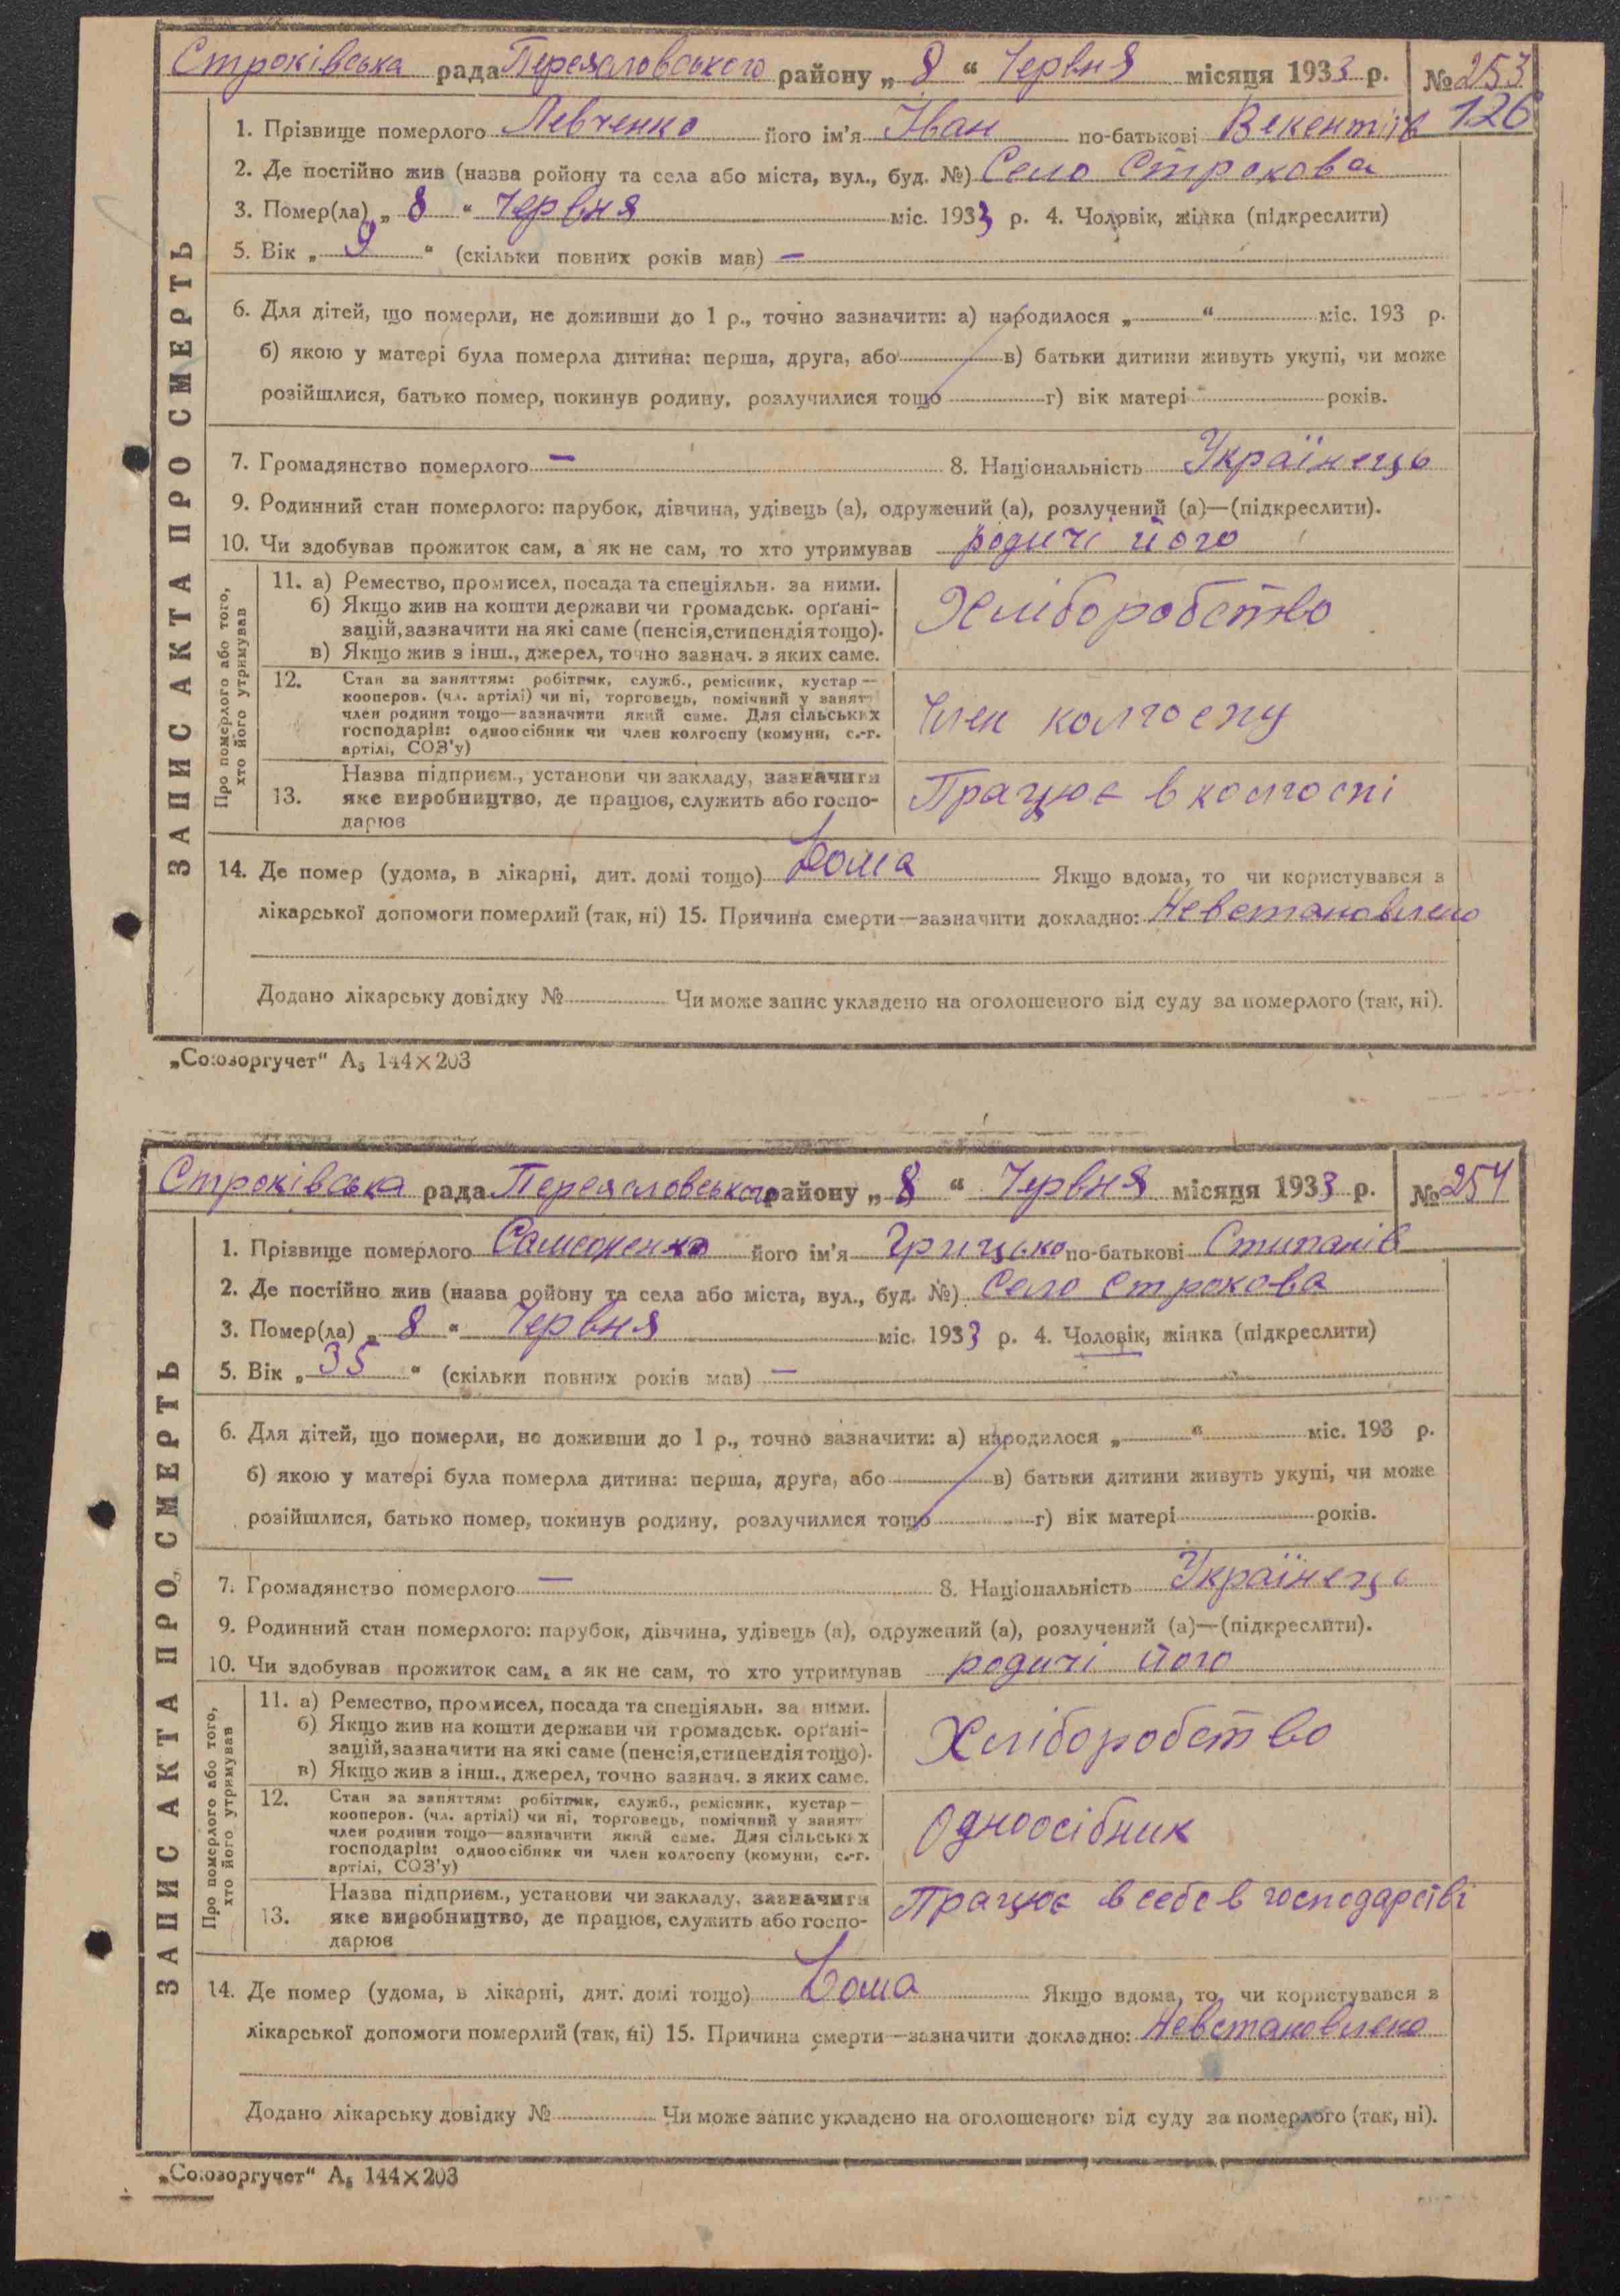 Строківська рада Переяславського району „ 8 “ Червня місяця 1933 р. № 253
126
1. Прізвище померлого Левченко його ім'я Іван по-батькові Викентіїв
2. Де постійно жив (назва ройону та села або міста, вул., буд. №) Село Строкова
3. Помер(ла) „ 8 “ Червня міс. 1933 р. 4. Чоловік, жінка (підкреслити)
5. Вік „ 9 “ (скільки повних років мав) —
6. Для дітей, що померли, не доживши до 1 р., точно зазначити: а) народилося „ “ міс. 193 р.
б) якою у матері була померла дитина: перша, друга, або в) батьки дитини живуть укупі, чи може
розійшлися, батько помер, покинув родину, розлучилися тощо г) вік матері років.
7. Громадянство померлого — 8. Національність Українець
9. Родинний стан померлого: парубок, дівчина, удівець (а), одружений (а), розлучений (а)—(підкреслити).
10. Чи здобував прожиток сам, а як не сам, то хто утримував родичі його
ЗАПИС АКТА ПРО СМЕРТЬ
Про померлого або того,
хто його утримував
11. а) Ремество, промисел, посада та спеціяльн. за ними.
б) Якщо жив на кошти держави чи громадськ. органі-
зацій, зазначити на які саме (пенсія, стипендія тощо).
в) Якщо жив з інш., джерел, точно зазнач. з яких саме.
Хліборобство
12. Стан за заняттям: робітник, служб., ремісник, кустар—
кооперов. (чл. артілі) чи ні, торговець, помічний у занятт
член родини тощо—зазначити який саме. Для сільських
господарів: одноосібник чи член колгоспу (комуни, с.-г.
артілі, СОЗ'у)
Член колгоспу
13. Назва підприєм., установи чи закладу, зазначити
яке виробництво, де працює, служить або госпо-
дарює
Працює в колгоспі
14. Де помер (удома, в лікарні, дит. домі тощо) Дома Якщо вдома, то чи користувався з
лікарської допомоги померлий (так, ні) 15. Причина смерти—зазначити докладно: Невстановлено
Додано лікарську довідку № Чи може запис укладено на оголошеного від суду за померлого (так, ні).
„Союзоргучет“ А₅ 144×203
Строківська рада Переясловського району „ 8 “ Червня місяця 1933 р. № 254
1. Прізвище померлого його ім'я Грицько по-батькові Стипанів
2. Де постійно жив (назва ройону та села або міста, вул., буд. №) Село Строкова
3. Помер(ла) „ 8 “ Червня міс. 1933 р. 4. Чоловік, жінка (підкреслити)
5. Вік „ 35 “ (скільки повних років мав) —
6. Для дітей, що померли, не доживши до 1 р., точно зазначити: а) народилося „ “ міс. 193 р.
б) якою у матері була померла дитина: перша, друга, або в) батьки дитини живуть укупі, чи може
розійшлися, батько помер, покинув родину, розлучилися тощо г) вік матері років.
7. Громадянство померлого — 8. Національність Українець
9. Родинний стан померлого: парубок, дівчина, удівець (а), одружений (а), розлучений (а)—(підкреслити).
10. Чи здобував прожиток сам, а як не сам, то хто утримував родичі його
ЗАПИС АКТА ПРО СМЕРТЬ
Про померлого або того,
хто його утримував
11. а) Ремество, промисел, посада та спеціяльн. за ними.
б) Якщо жив на кошти держави чи громадськ. органі-
зацій, зазначити на які саме (пенсія, стипендія тощо).
в) Якщо жив з інш., джерел, точно зазнач. з яких саме.
Хліборобство
12. Стан за заняттям: робітник, служб., ремісник, кустар—
кооперов. (чл. артілі) чи ні, торговець, помічний у занятт
член родини тощо—зазначити який саме. Для сільських
господарів: одноосібник чи член колгоспу (комуни, с.-г.
артілі, СОЗ'у)
Одноосібник
13. Назва підприєм., установи чи закладу, зазначити
яке виробництво, де працює, служить або госпо-
дарює
Працює в себе в господарстві
14. Де помер (удома, в лікарні, дит. домі тощо) Дома Якщо вдома, то чи користувався з
лікарської допомоги померлий (так, ні) 15. Причина смерти—зазначити докладно: Невстановлено
Додано лікарську довідку № Чи може запис укладено на оголошеного від суду за померлого (так, ні).
„Союзоргучет“ А₅ 144×203